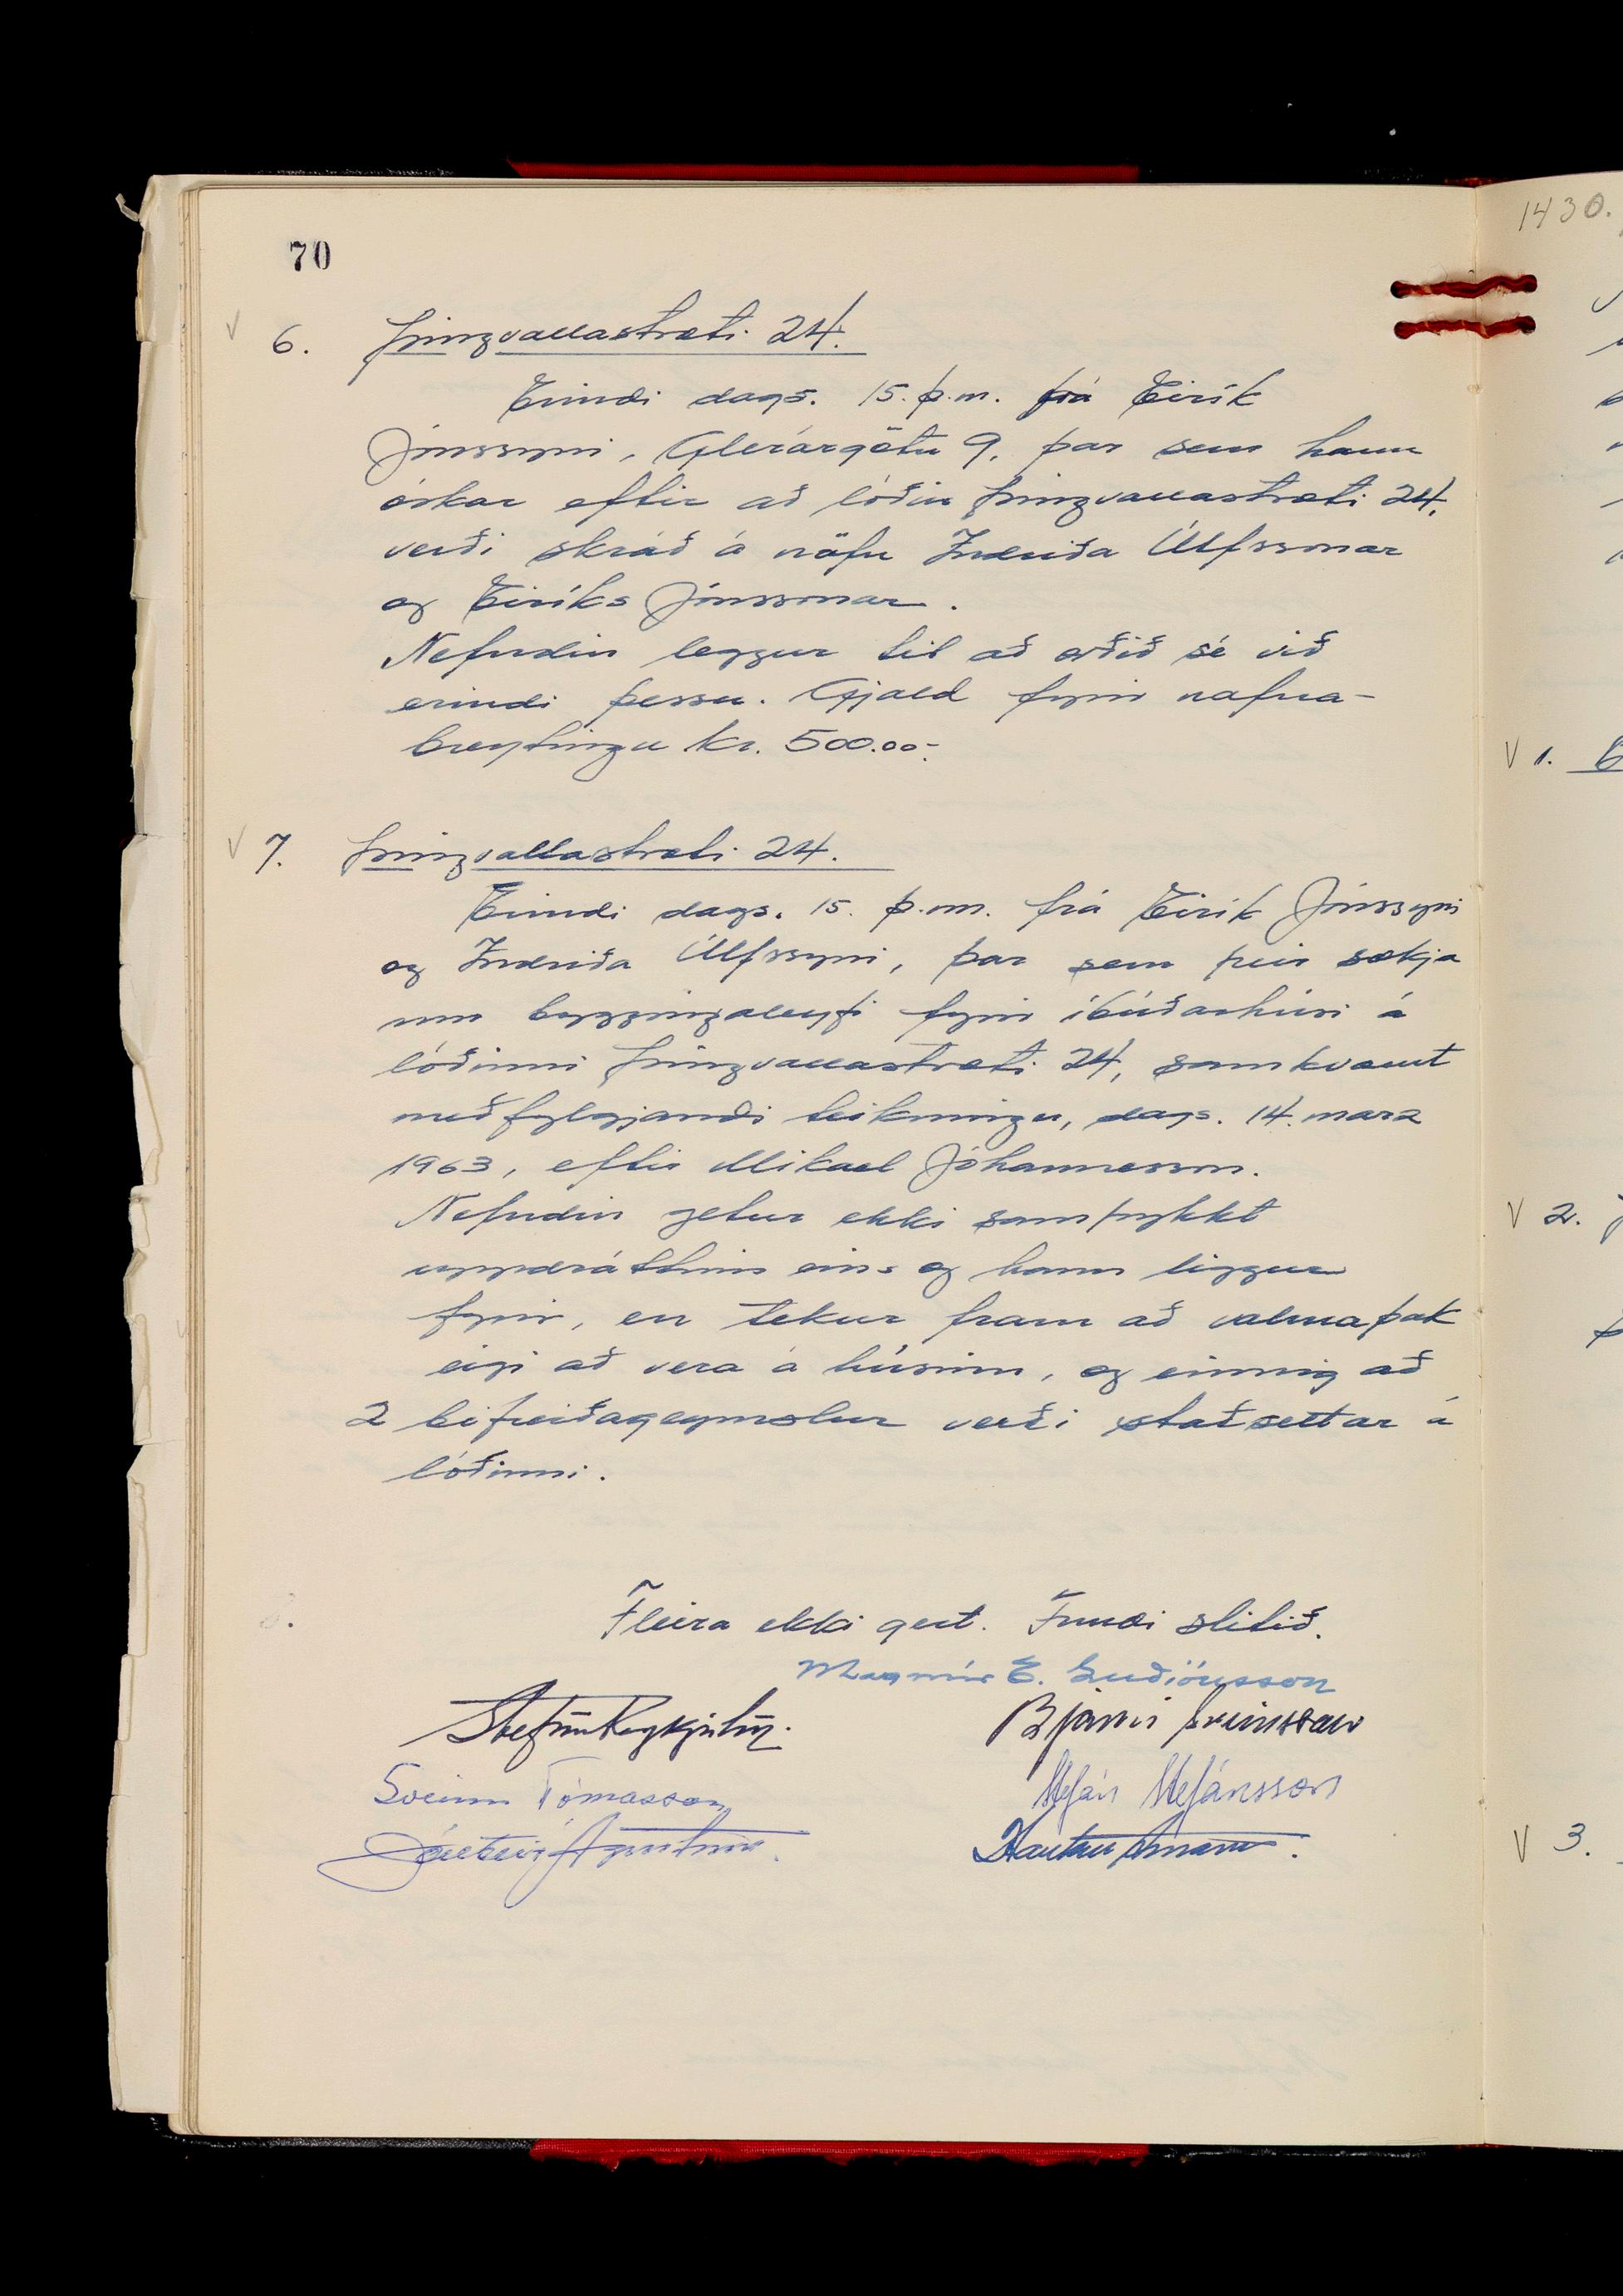 70
V 6. Þingvallastræti 24.
Erindi dags. 15. þ.m. frá Eirík
Jónssyni, Glerárgötu 9, þar sem hann
óskar eftir að lóðin Þingvallastræti 24,
verði skráð á nöfn Indriða Úlfssonar
og Eiríks Jónssonar.
Nefndin leggur til að orðið sé við
erindi þessu. Gjald fyrir nafna-
breytingu kr. 500.00-.
V 7. Þingvallastræti 24.
Erindi dags. 15. þ.m. frá Eirík Jónssyni
og Indriða Úlfssyni, þar sem þeir sækja
um byggingaleyfi fyrir íbúðarhúsi á
lóðinni Þingvallastræti 24, samkvæmt
meðfylgjandi teikningu, dags. 14. marz
1963, eftir Mikael Jóhannesson.
Nefndin getur ekki samþykkt
uppdráttinn eins og hann liggur
fyrir, en tekur fram að valmaþak
eigi að vera á húsinu, og einnig að
2 bifreiðageymslur verði staðsettar á
lóðinni.
Fleira ekki gert. Fundi slitið.
Magnús E. Guðjónsson
Stefán Reykjalín.
Bjarni Sveinsson
Sveinn Tómasson
Stefán Stefánsson
Haukur Árnason.
1430.
V 1.
V 2.
V 3.